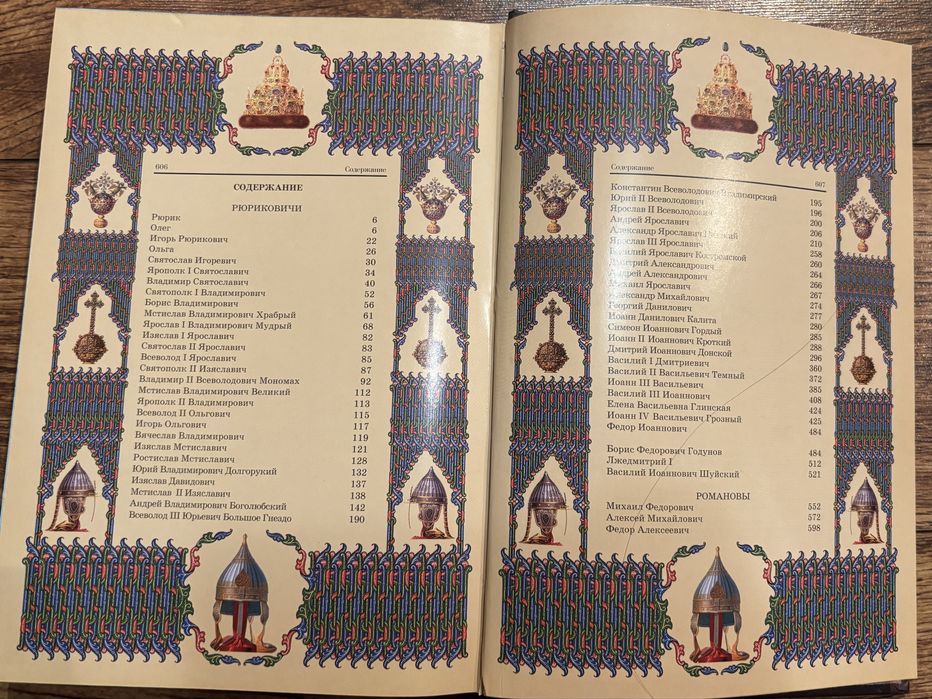 606 Содержание
СОДЕРЖАНИЕ
РЮРИКОВИЧИ
Рюрик 6
Олег 6
Игорь Рюрикович 22
Ольга 26
Святослав Игоревич 30
Ярополк I Святославич 34
Владимир Святославич 40
Святополк I Владимирович 52
Борис Владимирович 56
Мстислав Владимирович Храбрый 61
Ярослав I Владимирович Мудрый 68
Изяслав I Ярославич 82
Святослав II Ярославич 83
Всеволод I Ярославич 85
Святополк II Изяславич 87
Владимир II Всеволодович Мономах 92
Мстислав Владимирович Великий 112
Ярополк II Владимирович 113
Всеволод II Ольгович 115
Игорь Ольгович 117
Вячеслав Владимирович 119
Изяслав Мстиславич 121
Ростислав Мстиславич 128
Юрий Владимирович Долгорукий 132
Изяслав Давидович 137
Мстислав II Изяславич 138
Андрей Владимирович Боголюбский 142
Всеволод III Юрьевич Большое Гнездо 190
Содержание 607
Константин Всеволодович Владимирский 195
Юрий II Всеволодович 196
Ярослав II Всеволодович 200
Андрей Ярославич 206
Александр Ярославич 210
Ярослав III Ярославич 258
Василий Ярославич Костромской 260
Дмитрий Александрович 264
Андрей Александрович 266
Михаил Ярославич 267
Александр Михайлович 274
Георгий Данилович 277
Иоанн Данилович Калита 280
Симеон Иоаннович Гордый 285
Иоанн II Иоаннович Кроткий 288
Дмитрий Иоаннович Донской 296
Василий I Дмитриевич 360
Василий II Васильевич Темный 372
Иоанн III Васильевич 385
Василий III Иоаннович 408
Елена Васильевна Глинская 424
Иоанн IV Васильевич Грозный 425
Федор Иоаннович 484
Борис Федорович Годунов 484
Лжедмитрий I 512
Василий Иоаннович Шуйский 521
РОМАНОВЫ
Михаил Федорович 552
Алексей Михайлович 572
Федор Алексеевич 598